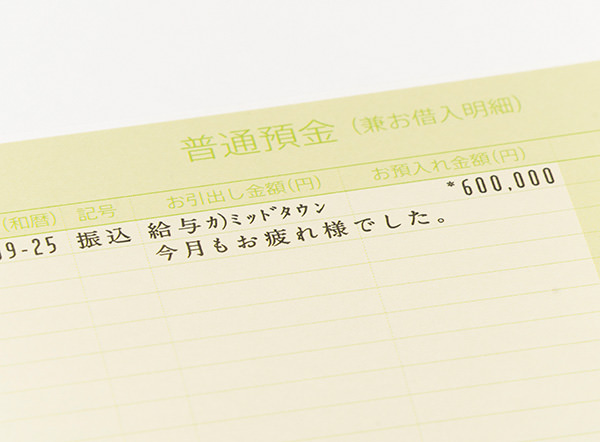 普通預金（兼お借入明細）
（和暦） 記号 お引出し金額(円) お預入れ金額(円)
09-25 振込 給与 カ)ミッドタウン *600,000
今月もお疲れ様でした。